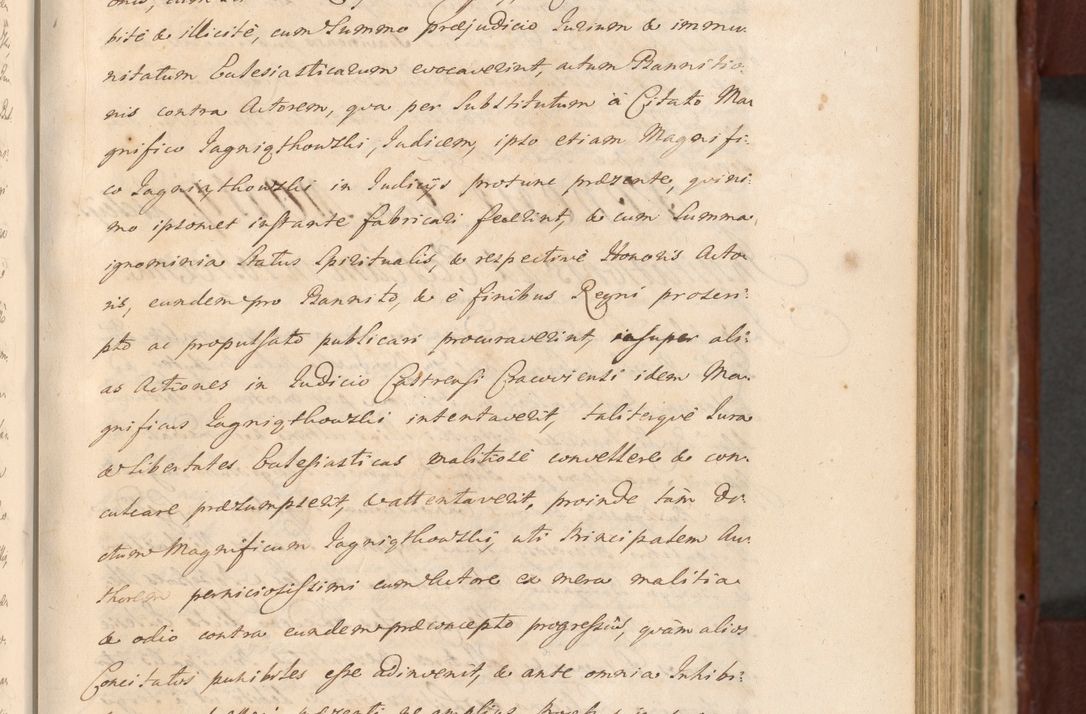 bitè & illicitè, cum Summo præjudicio Jurium & immu-
nitatum Eclesiasticarum evocaverint, actum Bannitio-
nis contra Actorem, qva per Substitutum à Citato Ma-
gnifico Jagniąthowski, Judicem, ipso etiam Magnifi-
co Jagniąthowski in Judicÿs protunc præsente, qvini-
mo ipsomet instante fabricari fecerint, & cum Summa
ignominia Status Spiritualis, & respectivè Honoris Acto-
ris, eundem pro Bannito, & è finibus Regni proscri-
pto ac propulsato publicari procuraverint, insuper ali-
as Actiones in Judicio Castrensi Cracoviensi idem Ma-
gnificus Jagniąthowski intentaverit, taliterqvè Jura
& Libertates Eclesiasticas malitiosè convellere & con-
culcare præsumpserit, & attentaverit, proinde tàm Di-
ctum Magnificum Jagniąthowski, uti Principalem Au-
thorem perniciosissimi cum Actore ex mera malitia
& odio contra eundem præconcepto progressûs, qvàm alios
Concitatos punibiles esse adinvenit, & ante omnia Inhibi-